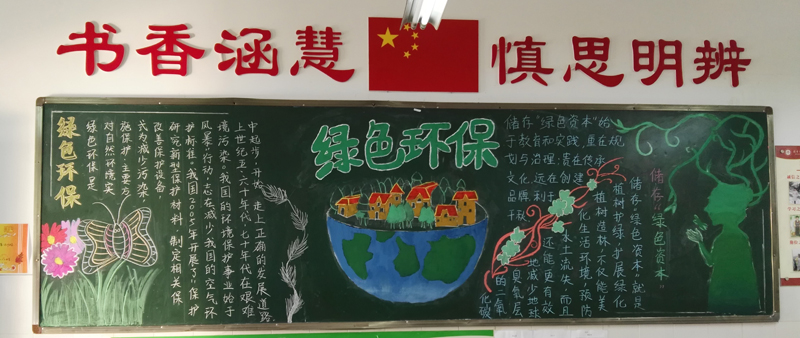 书香涵慧
慎思明辨
绿色环保
绿色环保是
对自然环境实
施保护,主要为
长为减少污染
改善保护设备,
研究新型保护材料,制定相关保
护标准,我国2005年开展了"保护
风暴"行动,志在减少我国的空气环
境污染,我国的环境保护事业始于
上世纪五、六十年代,七十年代在艰难
中起步,开始走上正确的发展道路
绿色环保
储存"绿色资本"始
于教育和实践,重在规
划与治理,贵在传承
文化,远在创建
品牌,利于
千秋
储存"绿色资本"
储存"绿色资本"就是
植树,扩展绿化
植树造林不仅能美
化生活环境,预防
水土流失,而且
还能更有效
地减少地球
臭氧层
的二氧
化碳